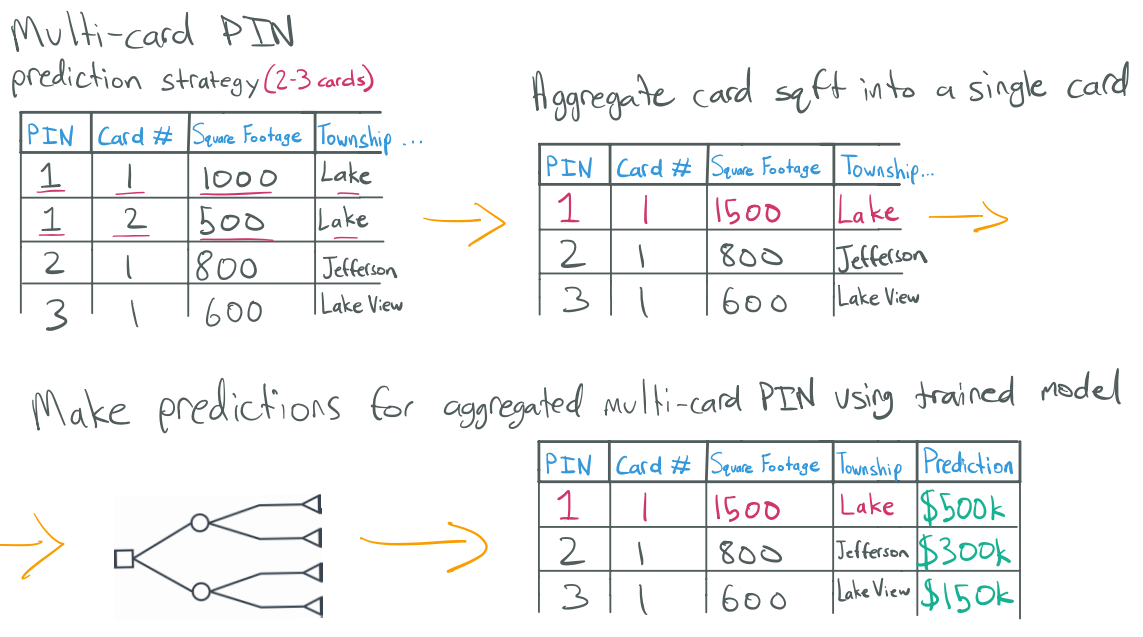 Multi-card PIN
prediction strategy (2-3 cards)
PIN Card # Square Footage Township ...
1 1 1000 Lake
1 2 500 Lake
2 1 800 Jefferson
3 1 600 Lake View
Aggregate card sqft into a single card
PIN Card # Square Footage Township...
1 1 1500 Lake
2 1 800 Jefferson
3 1 600 Lake View
Make predictions for aggregated multi-card PIN using trained model
PIN Card # Square Footage Township Prediction
1 1 1500 Lake $500k
2 1 800 Jefferson $300k
3 1 600 Lake View $150k